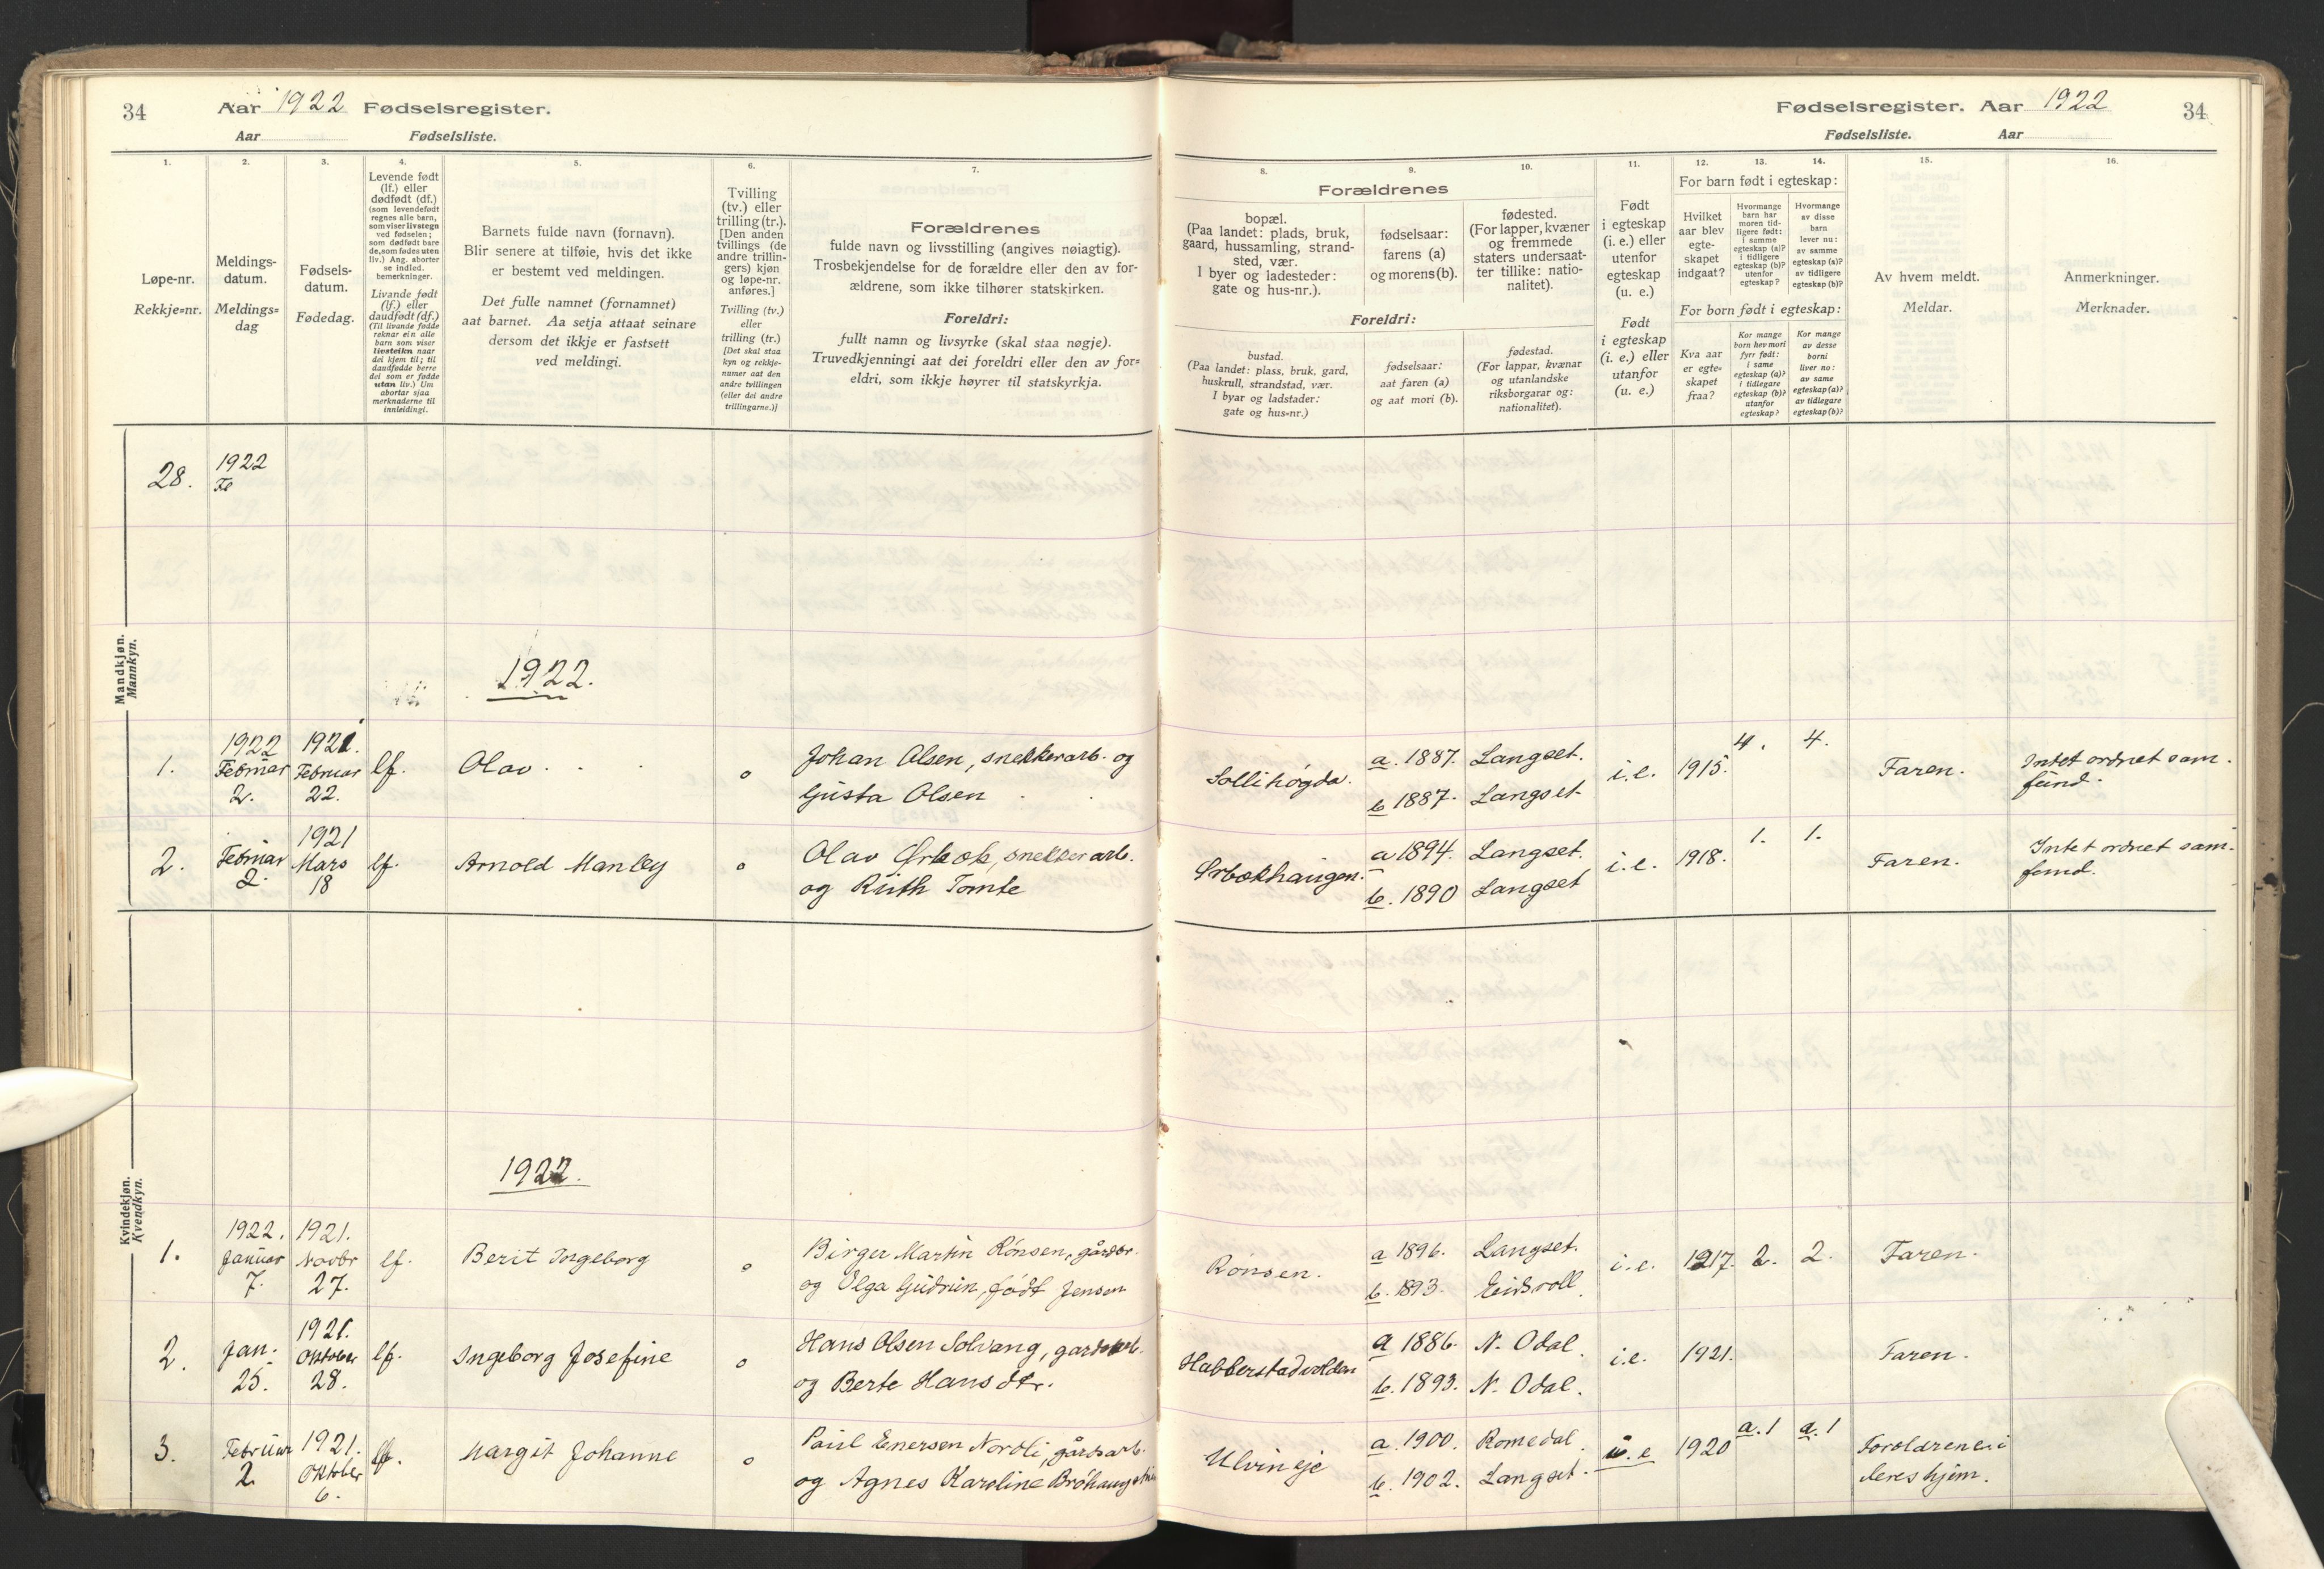 34
Aar 1922 Fødselsregister.
Aar Fødselsliste.
Fødselsregister. Aar 1922
34
Fødselsliste. Aar
1.
Løpe-nr.
Rekkje=nr.
2.
Meldings-
datum.
Meldings=
dag
3.
Fødsels-
datum.
Fødedag.
4.
Levende født
(lf.) eller
dødfødt (df.)
(som levendefødt
regnes alle barn,
som viser livstegn
ved fødselen;
som dødfødt bare
de, som fødes uten
liv.) Ang. aborter
se indled.
bemerkninger.
Livande født
(lf.) eller
daudfødt (df.)
(Til livande fødde
reknar ein alle
barn som viser
livsteikn naar
dei kjem til; til
daudfødde berre
dei som er fødde
utan liv.) Um
abortar sjaa
merknaderne til
innleidingi.
5.
Barnets fulde navn (fornavn).
Blir senere at tilføie, hvis det ikke
er bestemt ved meldingen.
Det fulle namnet (fornamnet)
aat barnet. Aa setja attaat seinare
dersom det ikkje er fastsett
ved meldingi.
6.
Tvilling
(tv.) eller
trilling (tr.).
[Den anden
tvillings (de
andre trillin-
gers) kjøn
og løpe-nr.
anføres.]
Tvilling (tv.)
eller
trilling (tr.)
[Det skal staa
kyn og rekkje-
numer aat den
andre tvillingen
(eller dei andre
trillingarne.)]
7.
Forældrenes
fulde navn og livsstilling (angives nøiagtig).
Trosbekjendelse for de forældre eller den av for-
ældrene, som ikke tilhører statskirken.
Foreldri:
fullt namn og livsyrke (skal staa nøgje).
Truvedkjenningi aat dei foreldri eller den av for=
eldri, som ikkje høyrer til statskyrkja.
8.
9.
10.
Forældrenes
bopæl.
(Paa landet: plads, bruk,
gaard, hussamling, strand-
sted, vær.
I byer og ladesteder:
gate og hus-nr.).
fødselsaar:
farens (a)
og morens (b).
fødested.
(For lapper, kvæner
og fremmede
staters undersaat-
ter tillike: natio-
nalitet).
Foreldri:
bustad.
(Paa landet: plass, bruk, gard,
huskrull, strandstad, vær.
I byar og ladstader:
gate og hus=nr.)
fødselsaar:
aat faren (a)
og aat mori (b).
fødestad.
(For lappar, kvænar
og utanlandske
riksborgarar og:
nationalitet).
11.
Født
i egteskap
(i. e.) eller
utenfor
egteskap
(u. e.)
Født
i egteskap
(i. e.) eller
utanfor
(u. e.)
12.
13.
14.
For barn født i egteskap:
Hvilket
aar blev
egte-
skapet
indgaat?
Hvormange
barn har
moren tid-
ligere født:
i samme
egteskap (a)?
i tidligere
egteskap (b)?
utenfor
egteskap?
Hvormange
av disse
barn
lever nu:
av samme
egteskap (a)?
av tidligere
egteskap (b)?
For born født i egteskap:
Kva aar
er egte=
skapet
fraa?
Kor mange
born hev mori
fyrr født:
i same
egteskap (a)?
i tidlegare
egteskap (b)?
utanfor
egteskap?
Kor mange
av desse
borni
liver no:
av same
egteskap (a)?
av tidlegare
egteskap (b)?
15.
Av hvem meldt.
Meldar.
16.
Anmerkninger.
Merknader.
Mandkjøn.
Mannkyn.
28. 1922
Fe
1922.
1. 1922 Februar 2. 1921. Februar 22. lf. Olav Johan Olsen, snekkerarb. og
Gusta Olsen
Sollihøgda. a. 1887. Langset. i.e. 1915. 4. 4. Faren. Intet ordnet sam-
b 1887. Langset fund.
2. Februar 2. 1921 Mars 18 lf. Arnold Manley Olav Ørbæk, snekkerarb.
og Ruth Tomte
Ørbækhaugen. a 1894. Langset. i.e. 1918. 1. 1. Faren. Intet ordnet sam-
b. 1890 Langset fund.
Kvindekjøn.
Kvendkyn.
1922.
1. 1922. Januar 7. 1921. Novbr 27. lf. Berit Ingeborg Birger Martin Rönsen, gårdbr.
og Olga Gudrun, født Jensen
Rönsen. a 1896. Langset. i.e. 1917. 2. 2. Faren.
b. 1893. Eidsvoll
2. Jan. 25. 1921. Oktober 28. lf. Ingeborg Josefine Hans Olsen Solvang, gardsarb.
og Berte Hansdtr.
Habberstadvolden a 1886. N. Odal. i.e. 1921. Faren.
b. 1893. N. Odal.
3. Februar 2 1921. Oktober 6. lf. Margit Johanne Paul Enersen Nordli, gårdsarb.
og Agnes Karoline
Ulvin eje a. 1900. Romedal. i. e 1920 a. 1 a. 1 Forældrene i
b. 1902. Langset. deres hjem.